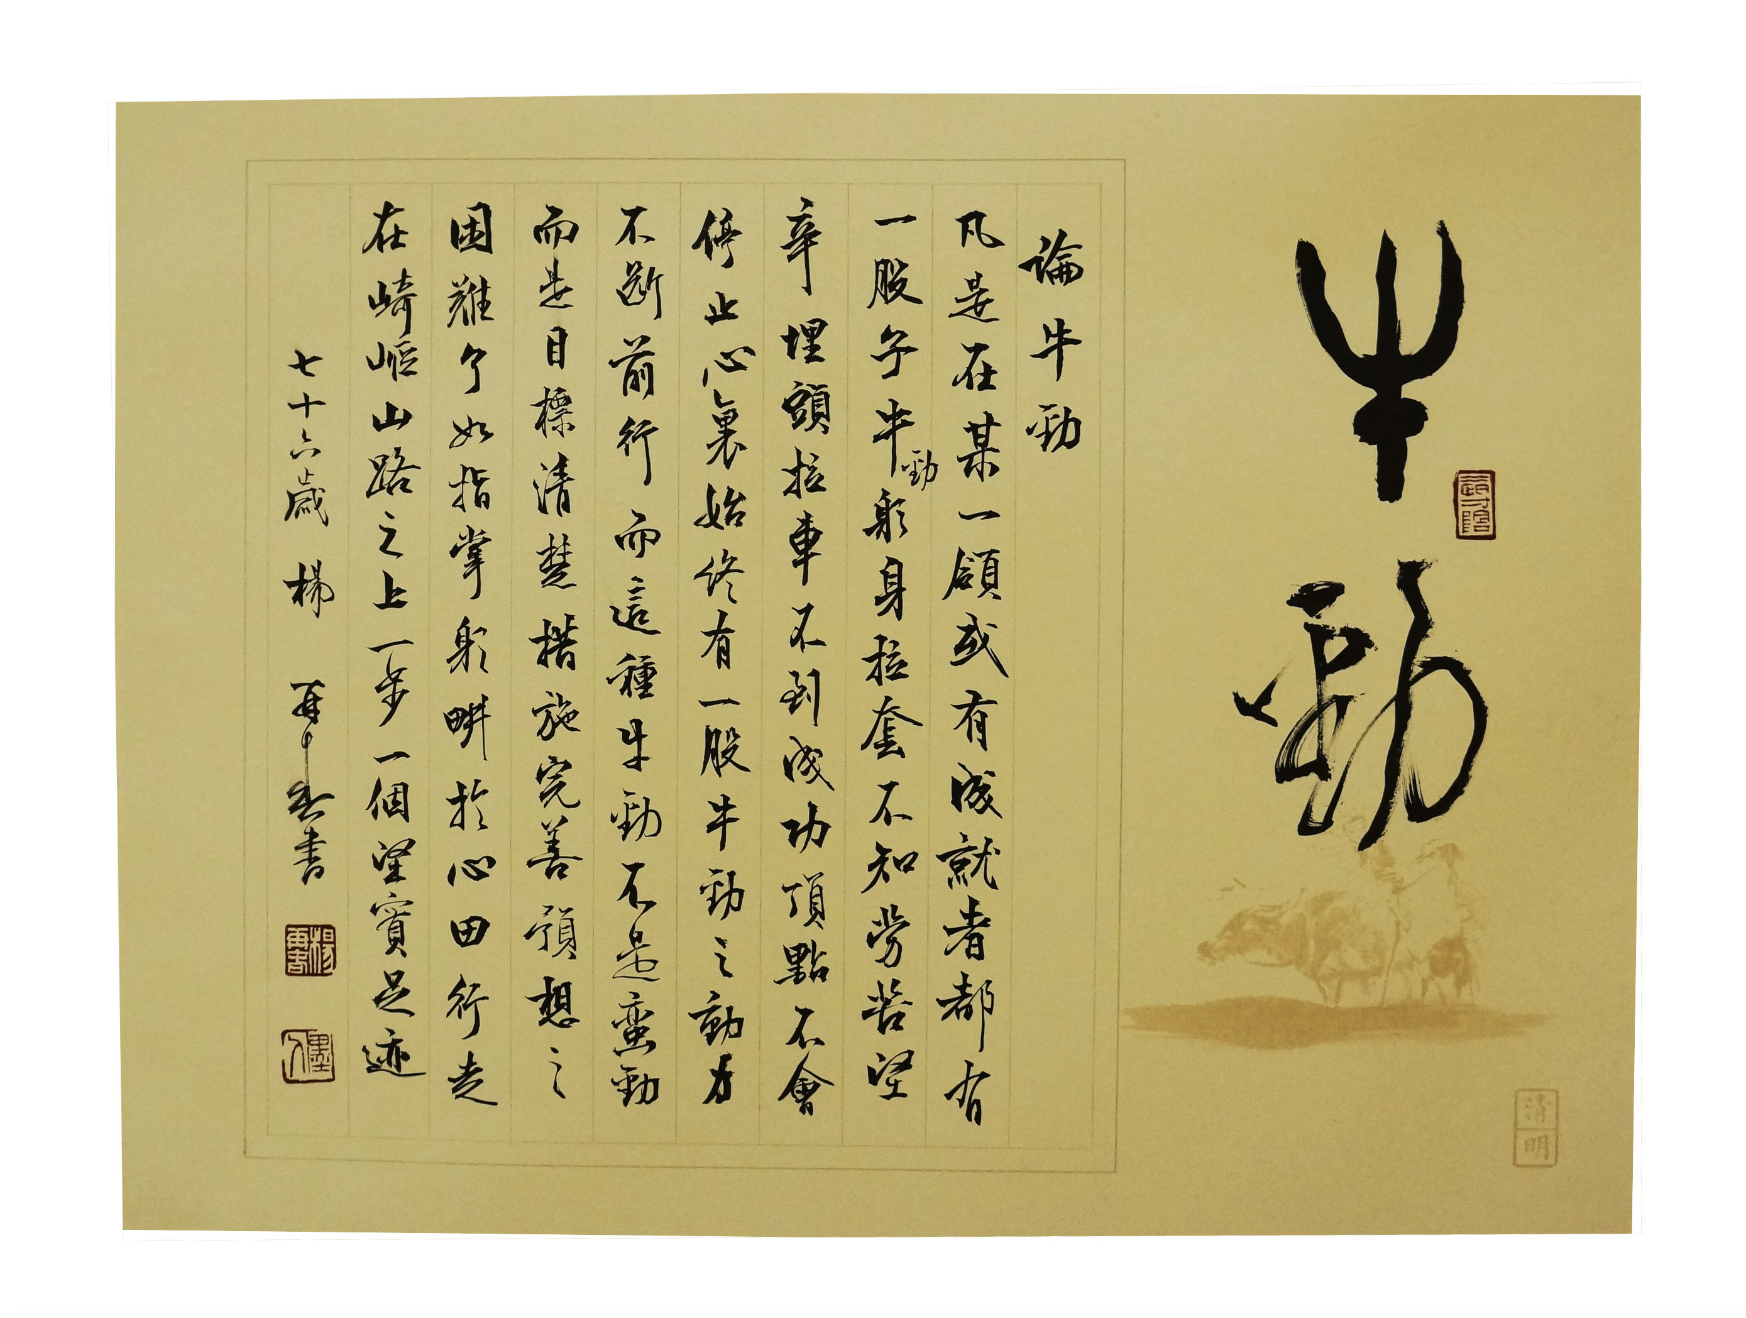 牛勁
論牛勁
凡是在某一領或有成就者都有
一股子牛勁躬身拉套不知勞苦堅
辛埋頭拉車不到成功頂點不會
停止心裏始終有一股牛勁之動力
不斷前行而這種牛勁不是蠻勁
而是目標清楚措施完善預想之
困難了如指掌躬畊於心田行走
在崎嶇山路之上一步一個堅實足迹
七十六歲楊書
清明